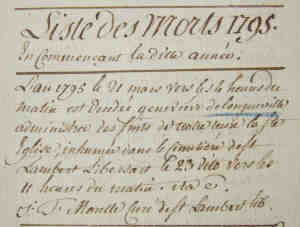 Liste des Morts 1795.
En Commencant la ditte année.
L'an 1795 le 21 mars vers les heures du
matin est decedée genevieve de longueville
administrée des sts de notre mere la ste
Eglise, inhumée dans le cimetière de st
Lambert Libersart le 23 dito vers les
11 heures du matin. ita e.
Curé de st Lambert lib.